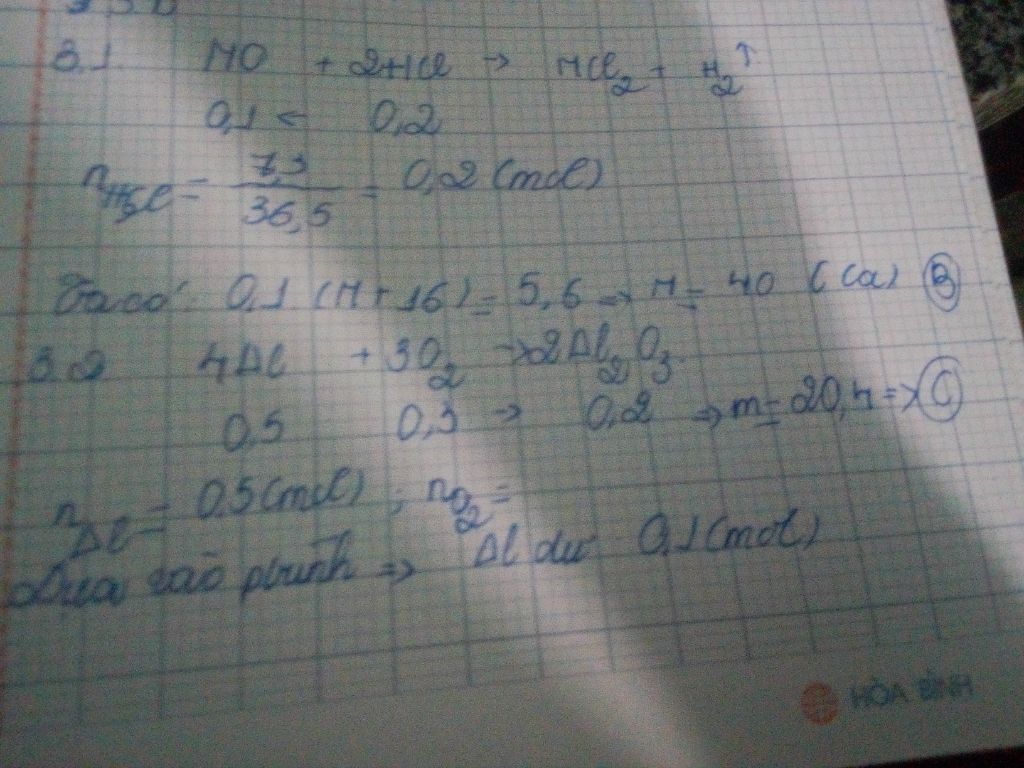 3.1 MO + 2HCl → MCl2 + H2↑
0,1 ← 0,2
nHCl = 7,3 / 36,5 = 0,2 (mol)
Ta có: 0,1 (M + 16) = 5,6 => M = 40 (Ca) B
3.2 4Al + 3O2 → 2Al2O3
0,5 0,3 → 0,2 => m = 20,4 => C
nAl = 0,5 (mol) ; nO2 =
Dựa vào => Al dư 0,1 (mol)
HÒA BÌNH